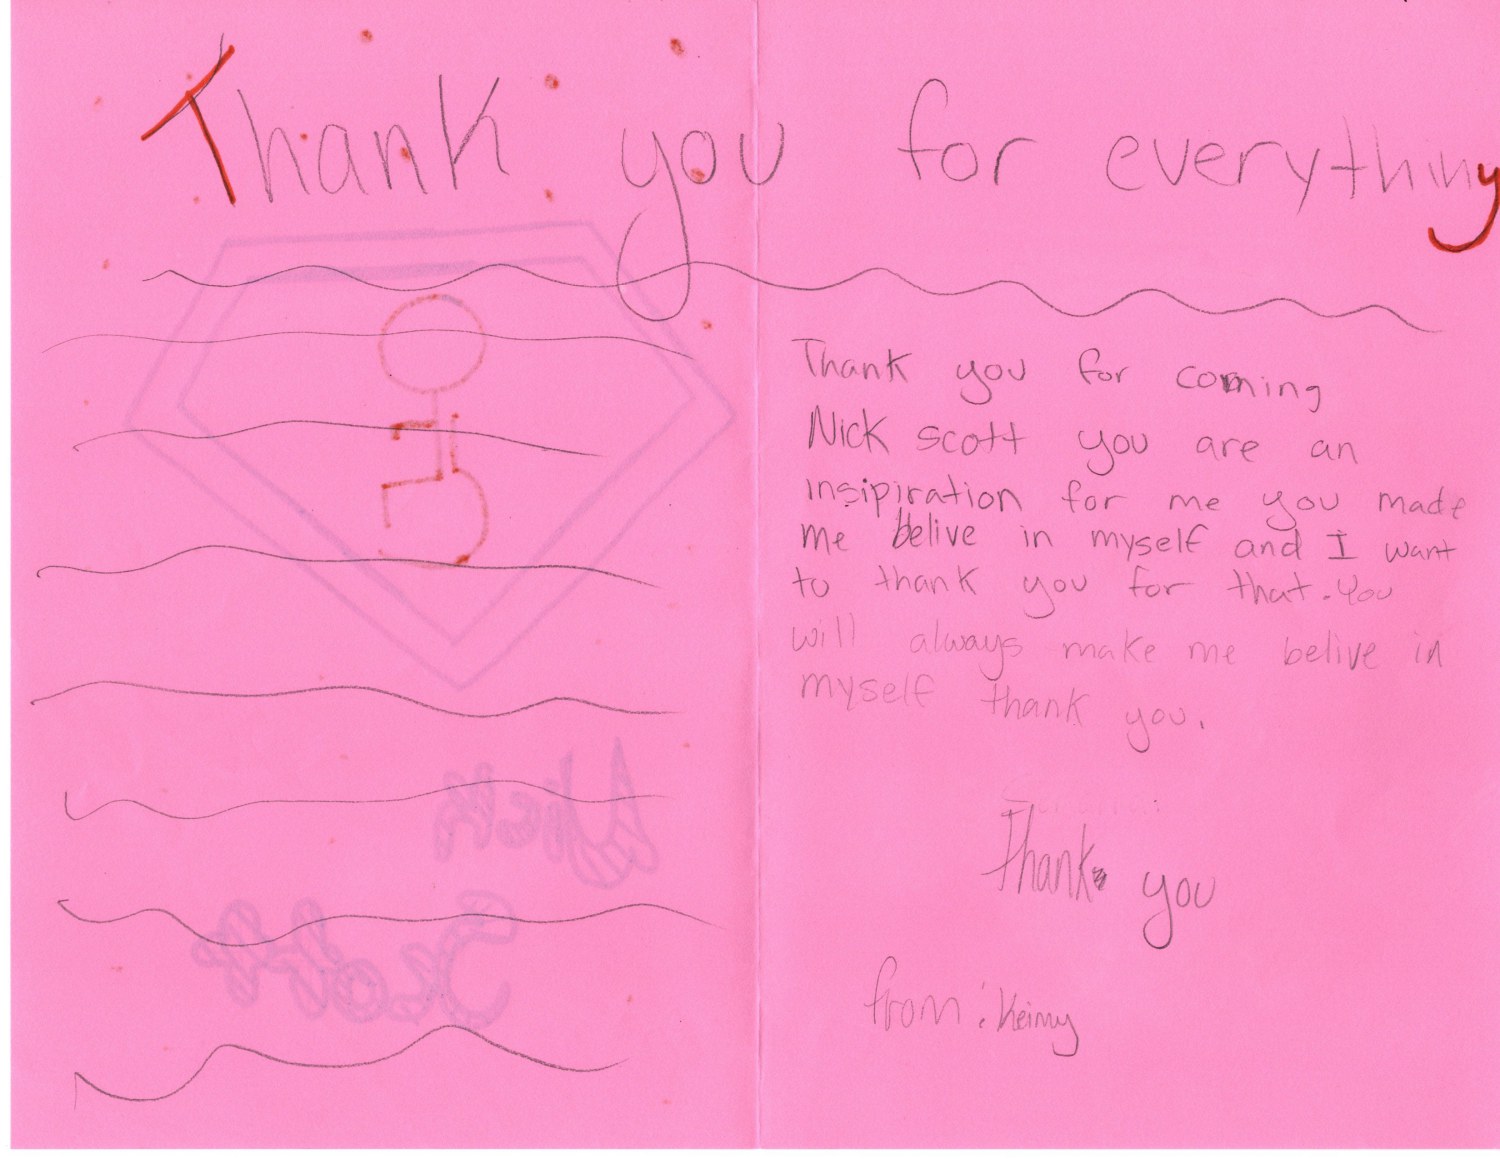 Thank you for everything
Thank you for coming
Nick scott you are an
insipiration for me you made
me belive in myself and I want
to thank you for that. You
will always make me belive in
myself thank you.
Thank you
from: Keimy
Nick
Scott